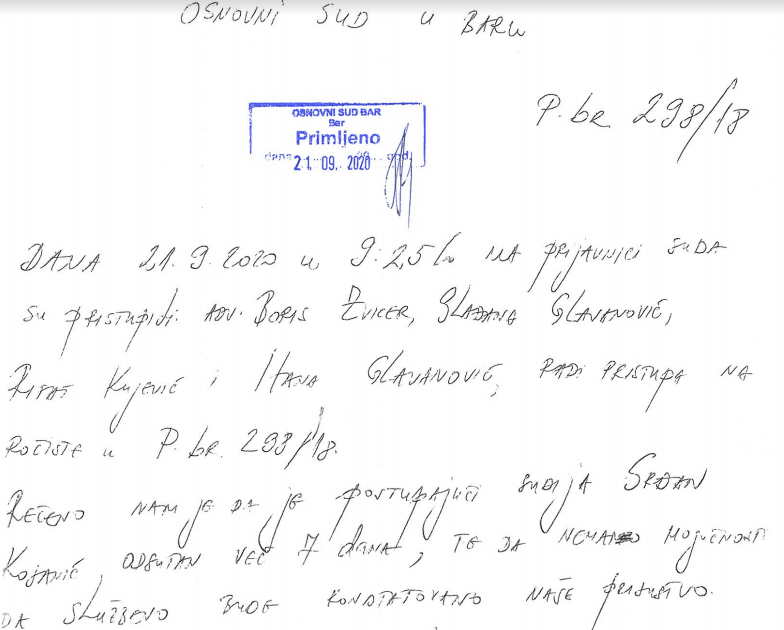 OSNOVNI SUD u BARu
OSNOVNI SUD BAR
Bar
Primljeno
dana 21. 09. 2020 god.
P. br. 298/18
DANA 21.9.2020 u 9:25 h NA PRIJAVNICI SUDA
SU PRISTUPILI: ADV. BORIS ZVICER, SLAĐANA GLAVANOVIĆ,
RIFAT KUJEVIĆ i ITANA GLAVANOVIĆ, RADI PRISTUPA NA
ROČIŠTE u P. br. 293/18.
REČENO NAM JE DA JE POSTUPAJUĆI SUDIJA SRĐAN
KOJANIĆ, ODSUTAN VEĆ 7 dana, TE DA NEMAMO MOGUĆNOSTI
DA SLUŽBENO BUDE KONSTATOVANO NAŠE PRISUSTVO.